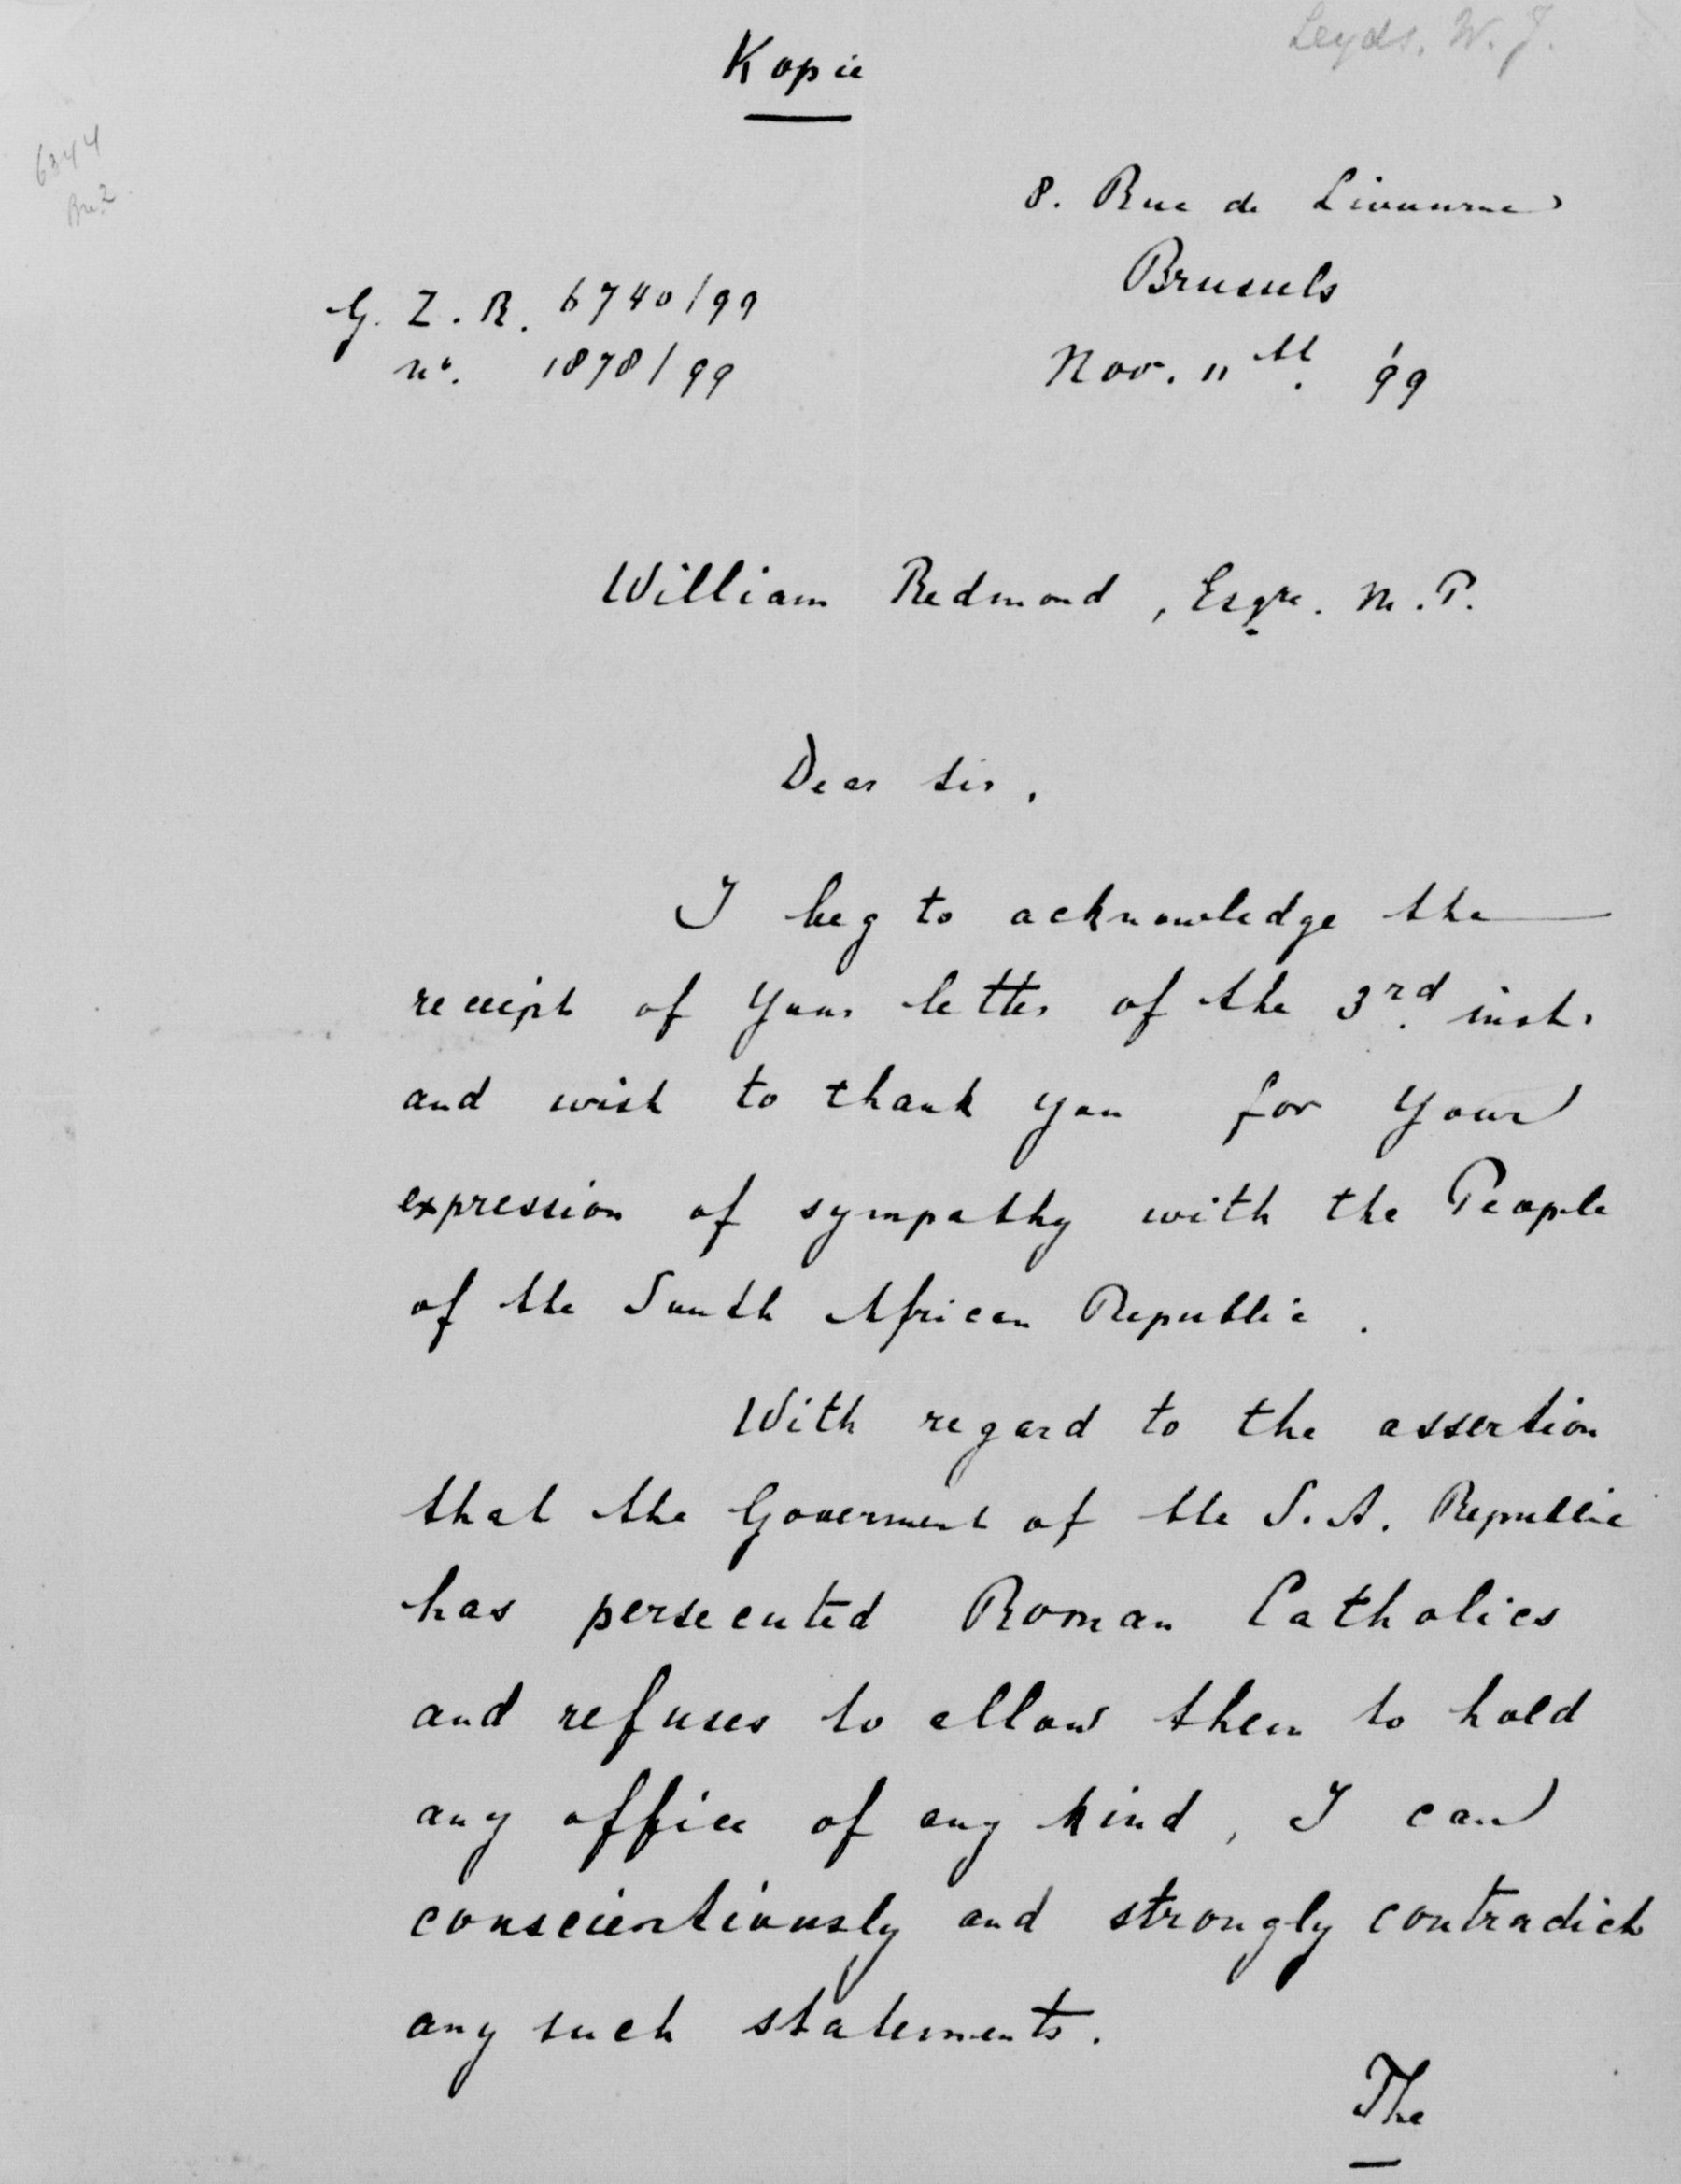 Leyds, W. J.
Kopie
6344
8. Rue de Livourne
Brussels
G. Z. R. 6740/99
no. 1878/99
Nov. 11th. '99
William Redmond, Esqre. M.P.
Dear Sir,
I beg to acknowledge the
receipt of your letter of the 3rd inst.
and wish to thank you for your
expression of sympathy with the People
of the South African Republic.
With regard to the assertion
that the Goverment of the S.A. Republic
has persecuted Roman Catholics
and refuses to allow them to hold
any office of any kind, I can
conscientiously and strongly contradict
any such statements.
The